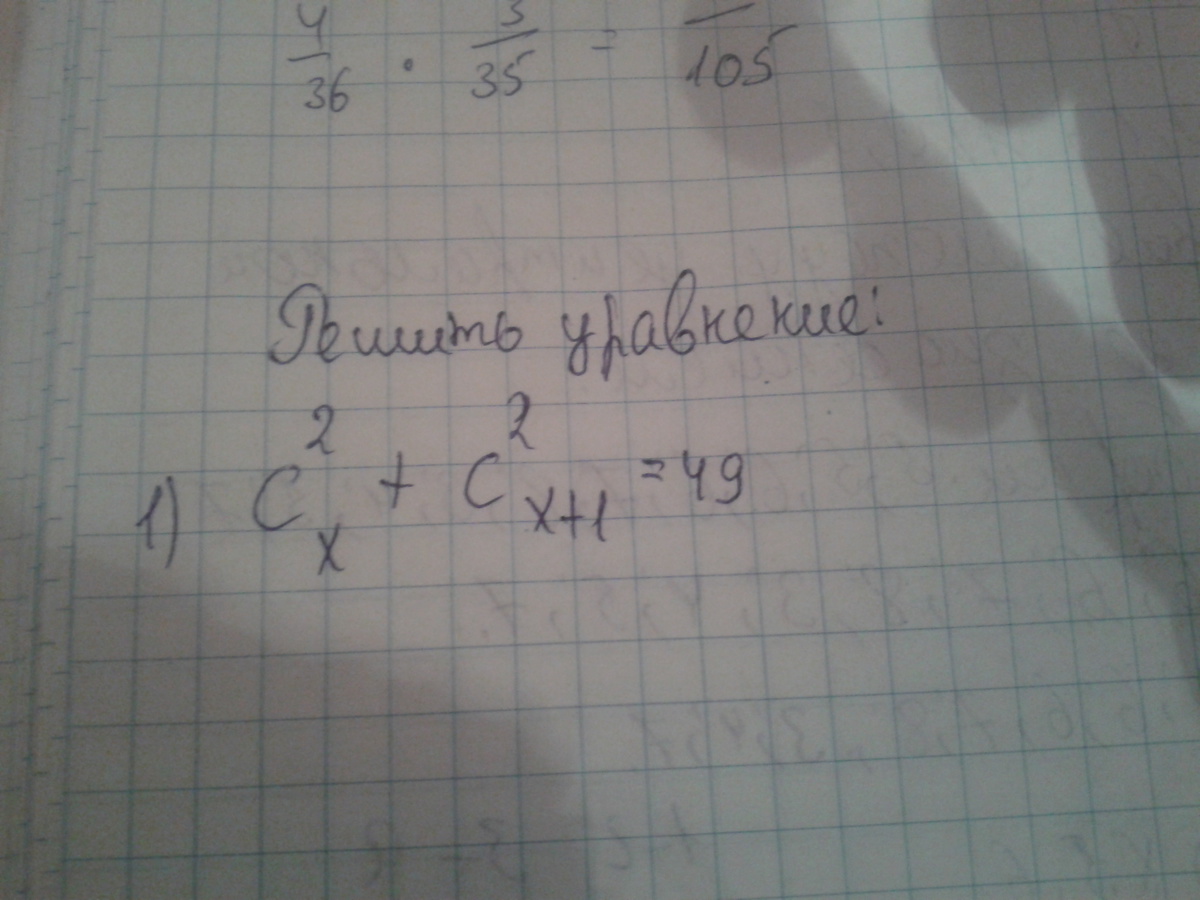 4/36 · 3/35 = /105
Решить уравнение:
1) C²ₓ + C²ₓ₊₁ = 49